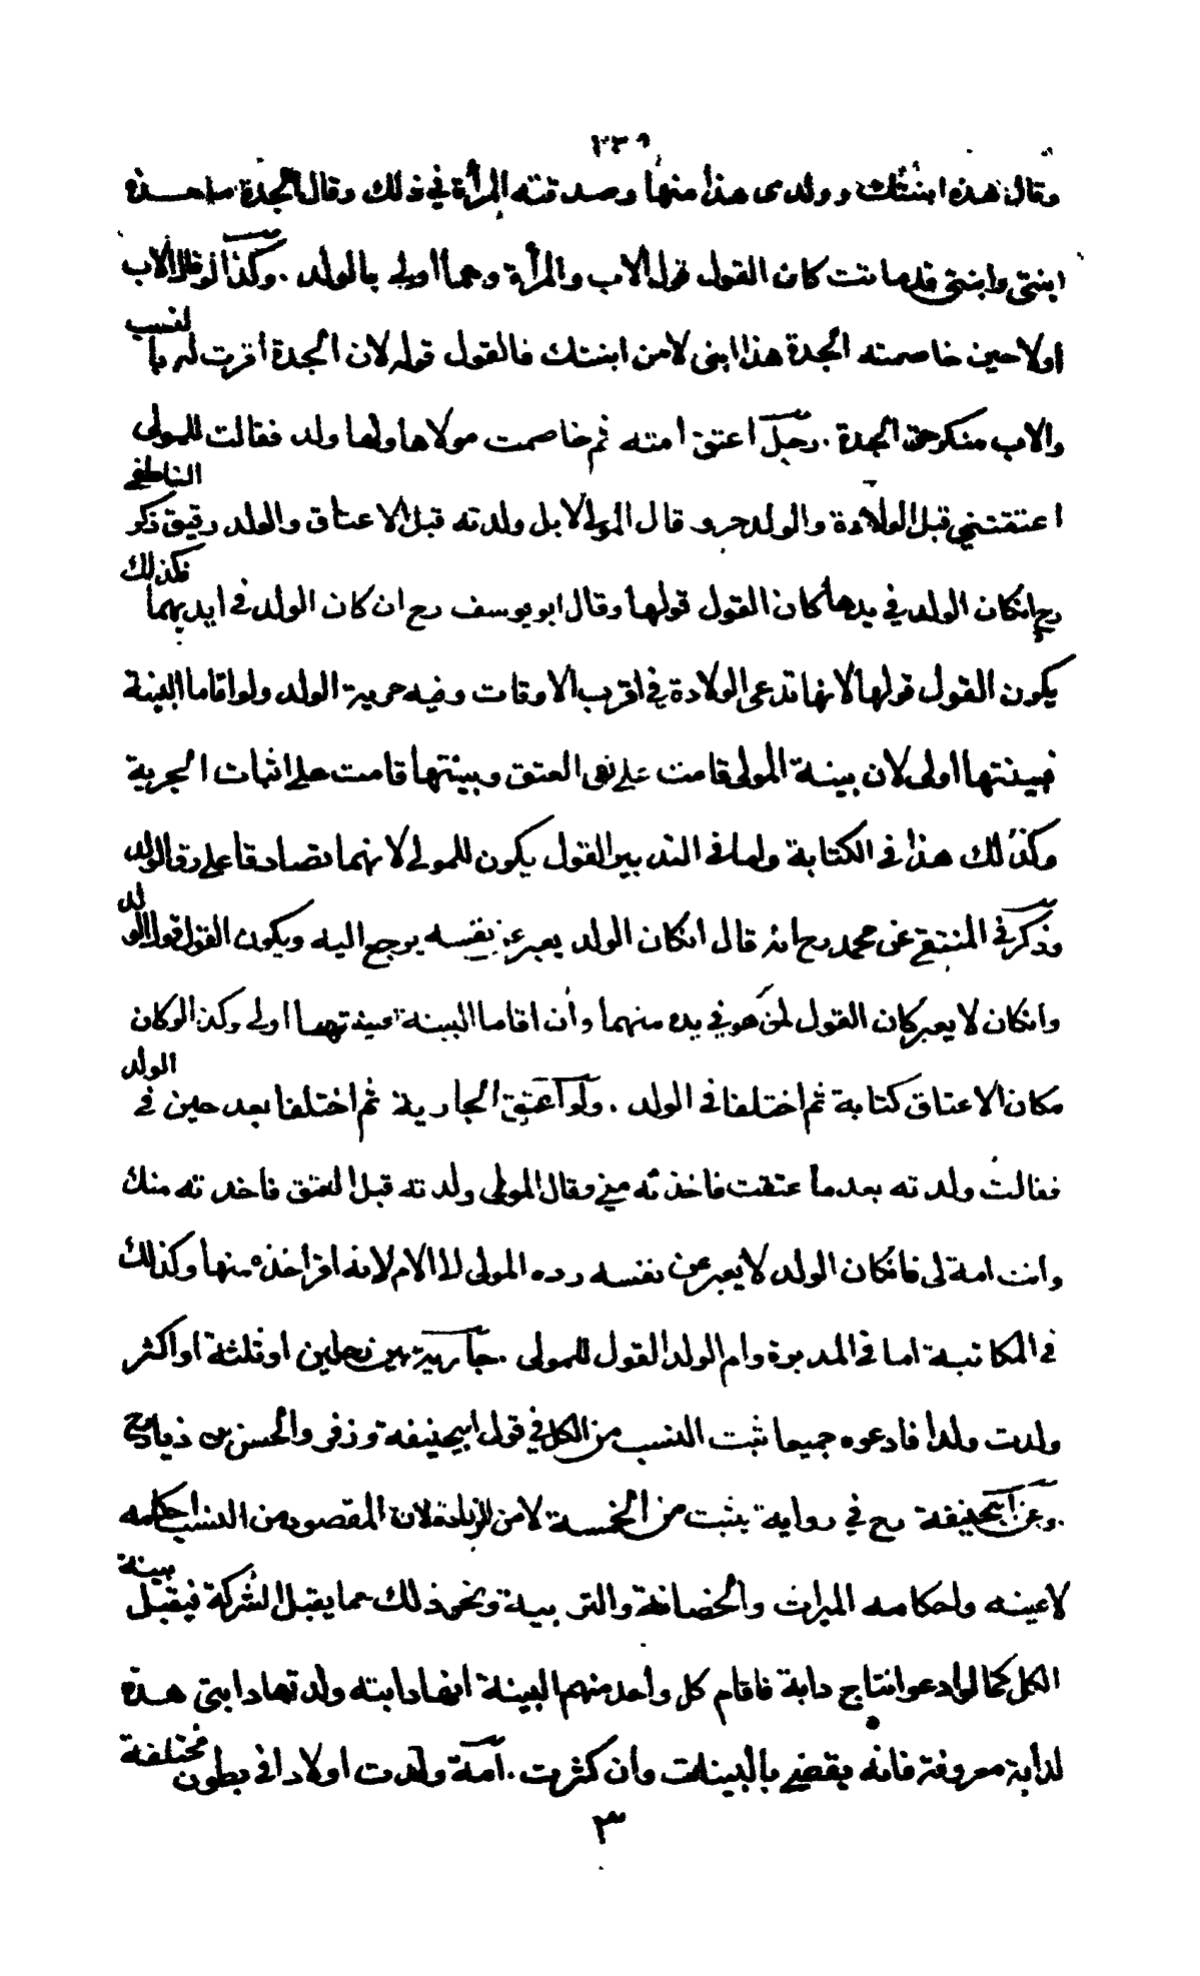 ٢٣٩
وقال هذه ابنتك وولدى هذا منها وصدقته المرأة في ذلك وقال الجدة ما هذه
ابنتى وابنتى قد ماتت كان القول قول الاب والمرأة وهما اولى بالولد . وكذا لو قال الاب
اولا حين خاصمته الجدة هذا ابنى لا من ابنتك فالقول قوله لان الجدة أقرت له بالنسب
والاب منكر حق الجدة . رجل اعتق امته ثم خاصمت مولاها ولها ولد فقالت للمولى
اعتقتنى قبل الولادة والولد حر و قال المولى لا بل ولدته قبل الاعتاق والولد رقيق ذكر الناطفى
رح انكان الولد في يدها كان القول قولها وقال ابو يوسف رح ان كان الولد فى ايديهما فكذلك
يكون القول قولها لانها تدعى الولادة فى اقرب الاوقات وفيه حرية الولد ولو اقاما البينة
فبينتها اولى لان بينة المولى قامت على نفى العتق وبينتها قامت على اثبات الحرية
وكذلك هذا فى الكتابة واما فى التدبير القول يكون للمولى لانهما تصادقا على رق الولد
وذكر فى المنتقى عن محمد رح انه قال انكان الولد يعبر عن نفسه يرجع اليه ويكون القول قول الولد
وانكان لا يعبر كان القول لمن هو في يده منهما وأن اقاما البينة فبينتهما اولى وكذا لو كان
مكان الاعتاق كتابة ثم اختلفا فى الولد . ولو اعتق الجارية ثم اختلفا بعد حين فى الولد
فقالت ولدته بعد ما عتقت فاخذته منى وقال المولى ولدته قبل العتق فاخذته منك
وانت امة لى فانكان الولد لا يعبر عن نفسه رده المولى الى الام لانه اقر اخذه منها وكذلك
فى المكاتبة اما فى المدبرة وام الولد القول للمولى . جارية بين رجلين او ثلثة او اكثر
ولدت ولدا فادعوه جميعا ثبت النسب من الكل في قول ابيحنيفة وزفر والحسن بن زياد رح
. وعن ابيحنيفة رح في رواية يثبت من الخمسة لا من الزيادة لان المقصود من النسب احكامه
لاعينه واحكامه الميراث والحضانة والتربية ونحو ذلك مما يقبل الشركة فيقبل بينة
الكل كما لو ادعوا نتاج دابة فاقام كل واحد منهم البينة انها دابته ولدتها دابتى هذه
لدابة معروفة فانه يقضى بالبينات وان كثرت . امة ولدت اولادا فى بطون مختلفة
٣